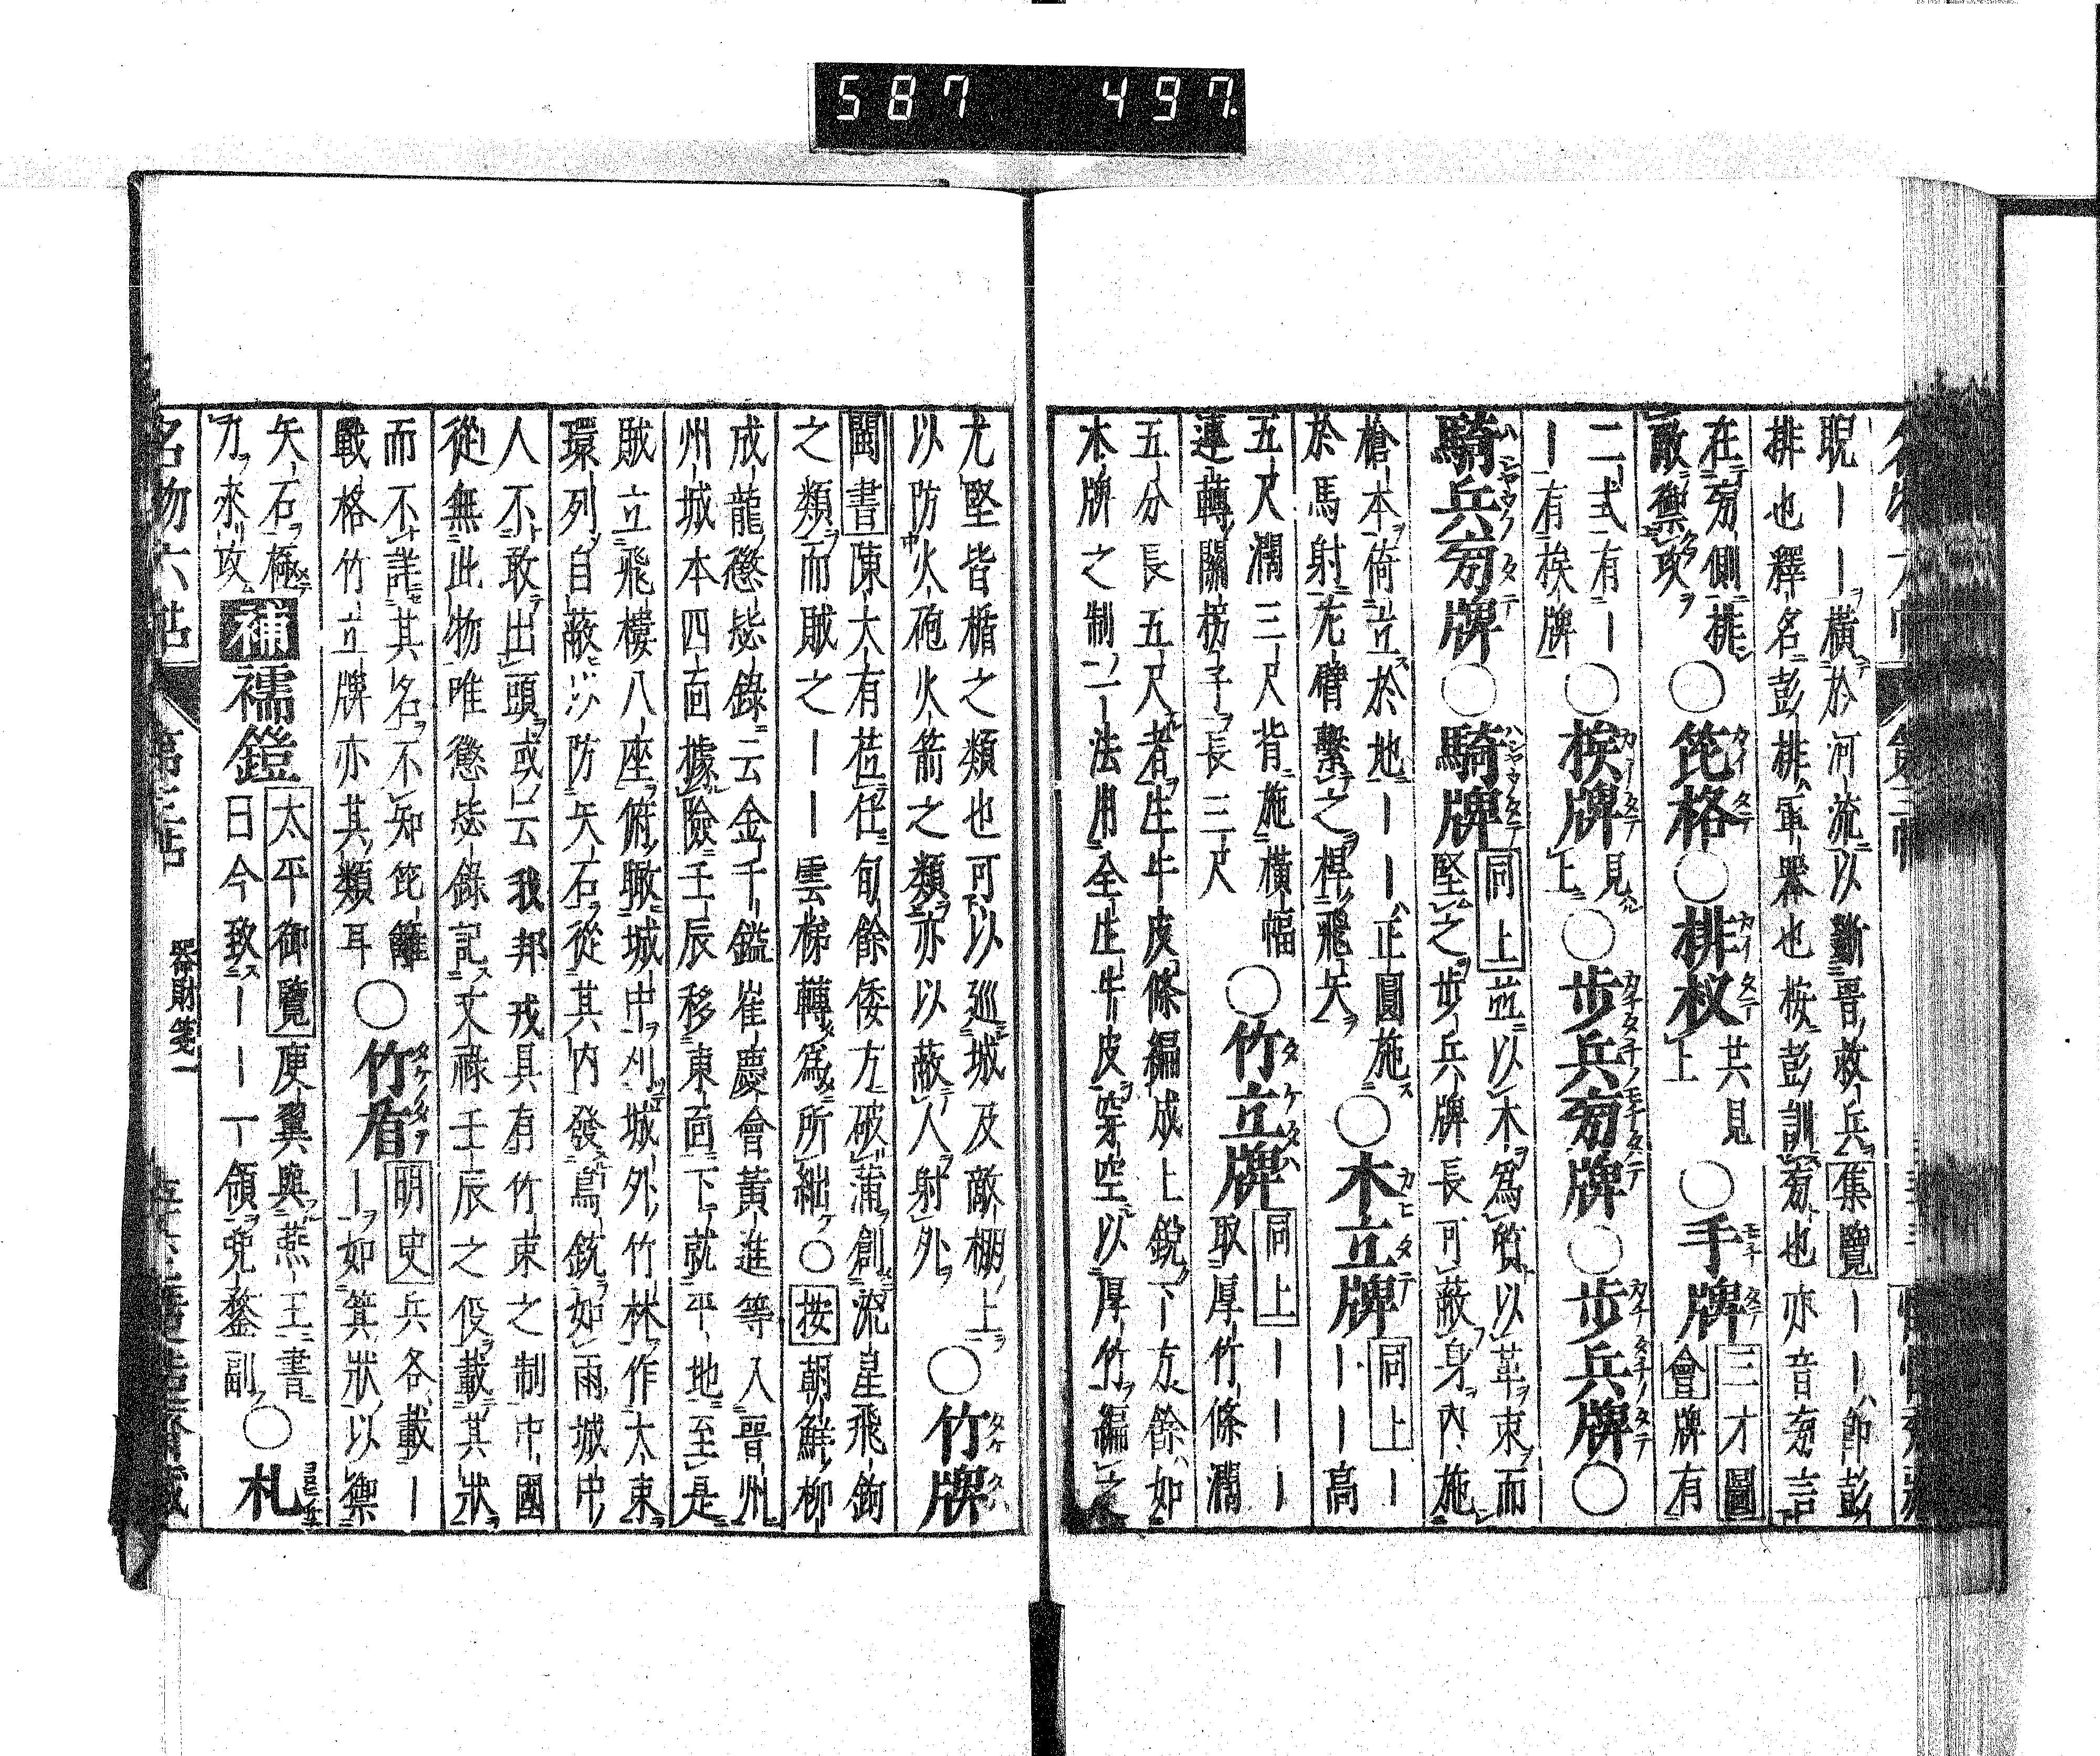 睨ーー橫於河流以斷晉救兵集覽ーー卽彭
排也釋名彭排軍器也按彭訓旁也亦音旁言
在旁側排
敵禦攻
○笓格○排杈
共見
上
○手牌
三才圖
會牌有
二式有ー
ー有挨牌
○挨牌
見
上
○步兵旁牌○步兵牌○
騎兵旁牌○騎牌
同上並以木爲質以革束而
堅之步兵牌長可蔽身內施
槍木倚立於地ーー正圓施
於馬射左臂繫之捍飛矢
○木立牌
同上ー
ーー高
五尺濶三尺背施橫幅
連轉關榜子長三尺
○竹立牌
同上ーーー
取厚竹條濶
五分長五尺者生牛皮條編成上銳下方餘如
木牌之制一一法用全生牛皮穿空以厚竹編之
尤堅皆楯之類也可以巡城及敵棚上
以防火砲火箭之類亦以蔽人射外
○竹牌
閩書陳大有莅任旬餘倭方破蒲創流星飛鉤
之類而賊之ーー雲梯轉爲所絀○按朝鮮柳
成龍懲毖錄云金千鎰崔慶會黃進等入晉州
州城本四面據險壬辰移東面下就平地至是
賊立飛樓八座俯瞰城中刈城外竹林作大束
環列自蔽以防矢石從其內發鳥銃如雨城中
人不敢出頭或云我邦戎具有竹束之制中國
從無此物唯懲毖錄記文祿壬辰之役載其狀
而不詳其名不知笓籬
戰格竹立牌亦其類耳
○竹盾
明史兵各載ー
ー如箕狀以禦
矢石極
力來攻
補襦鎧
太平御覽庾翼與燕王書
曰今致ーー一領兜鍪副
○札
名物六帖
第三帖
器財箋一
587 497.